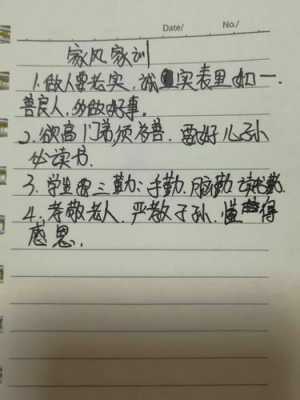 Date/ No./
家风家训
1.做人要老实,诚实表里如一.
善良人,多做好事。
2.欲高门弟须为善,要好儿孙
必读书.
3.学生要三勤:手勤.脑勤.
4.孝敬老人.严教子孙.懂得
感恩.